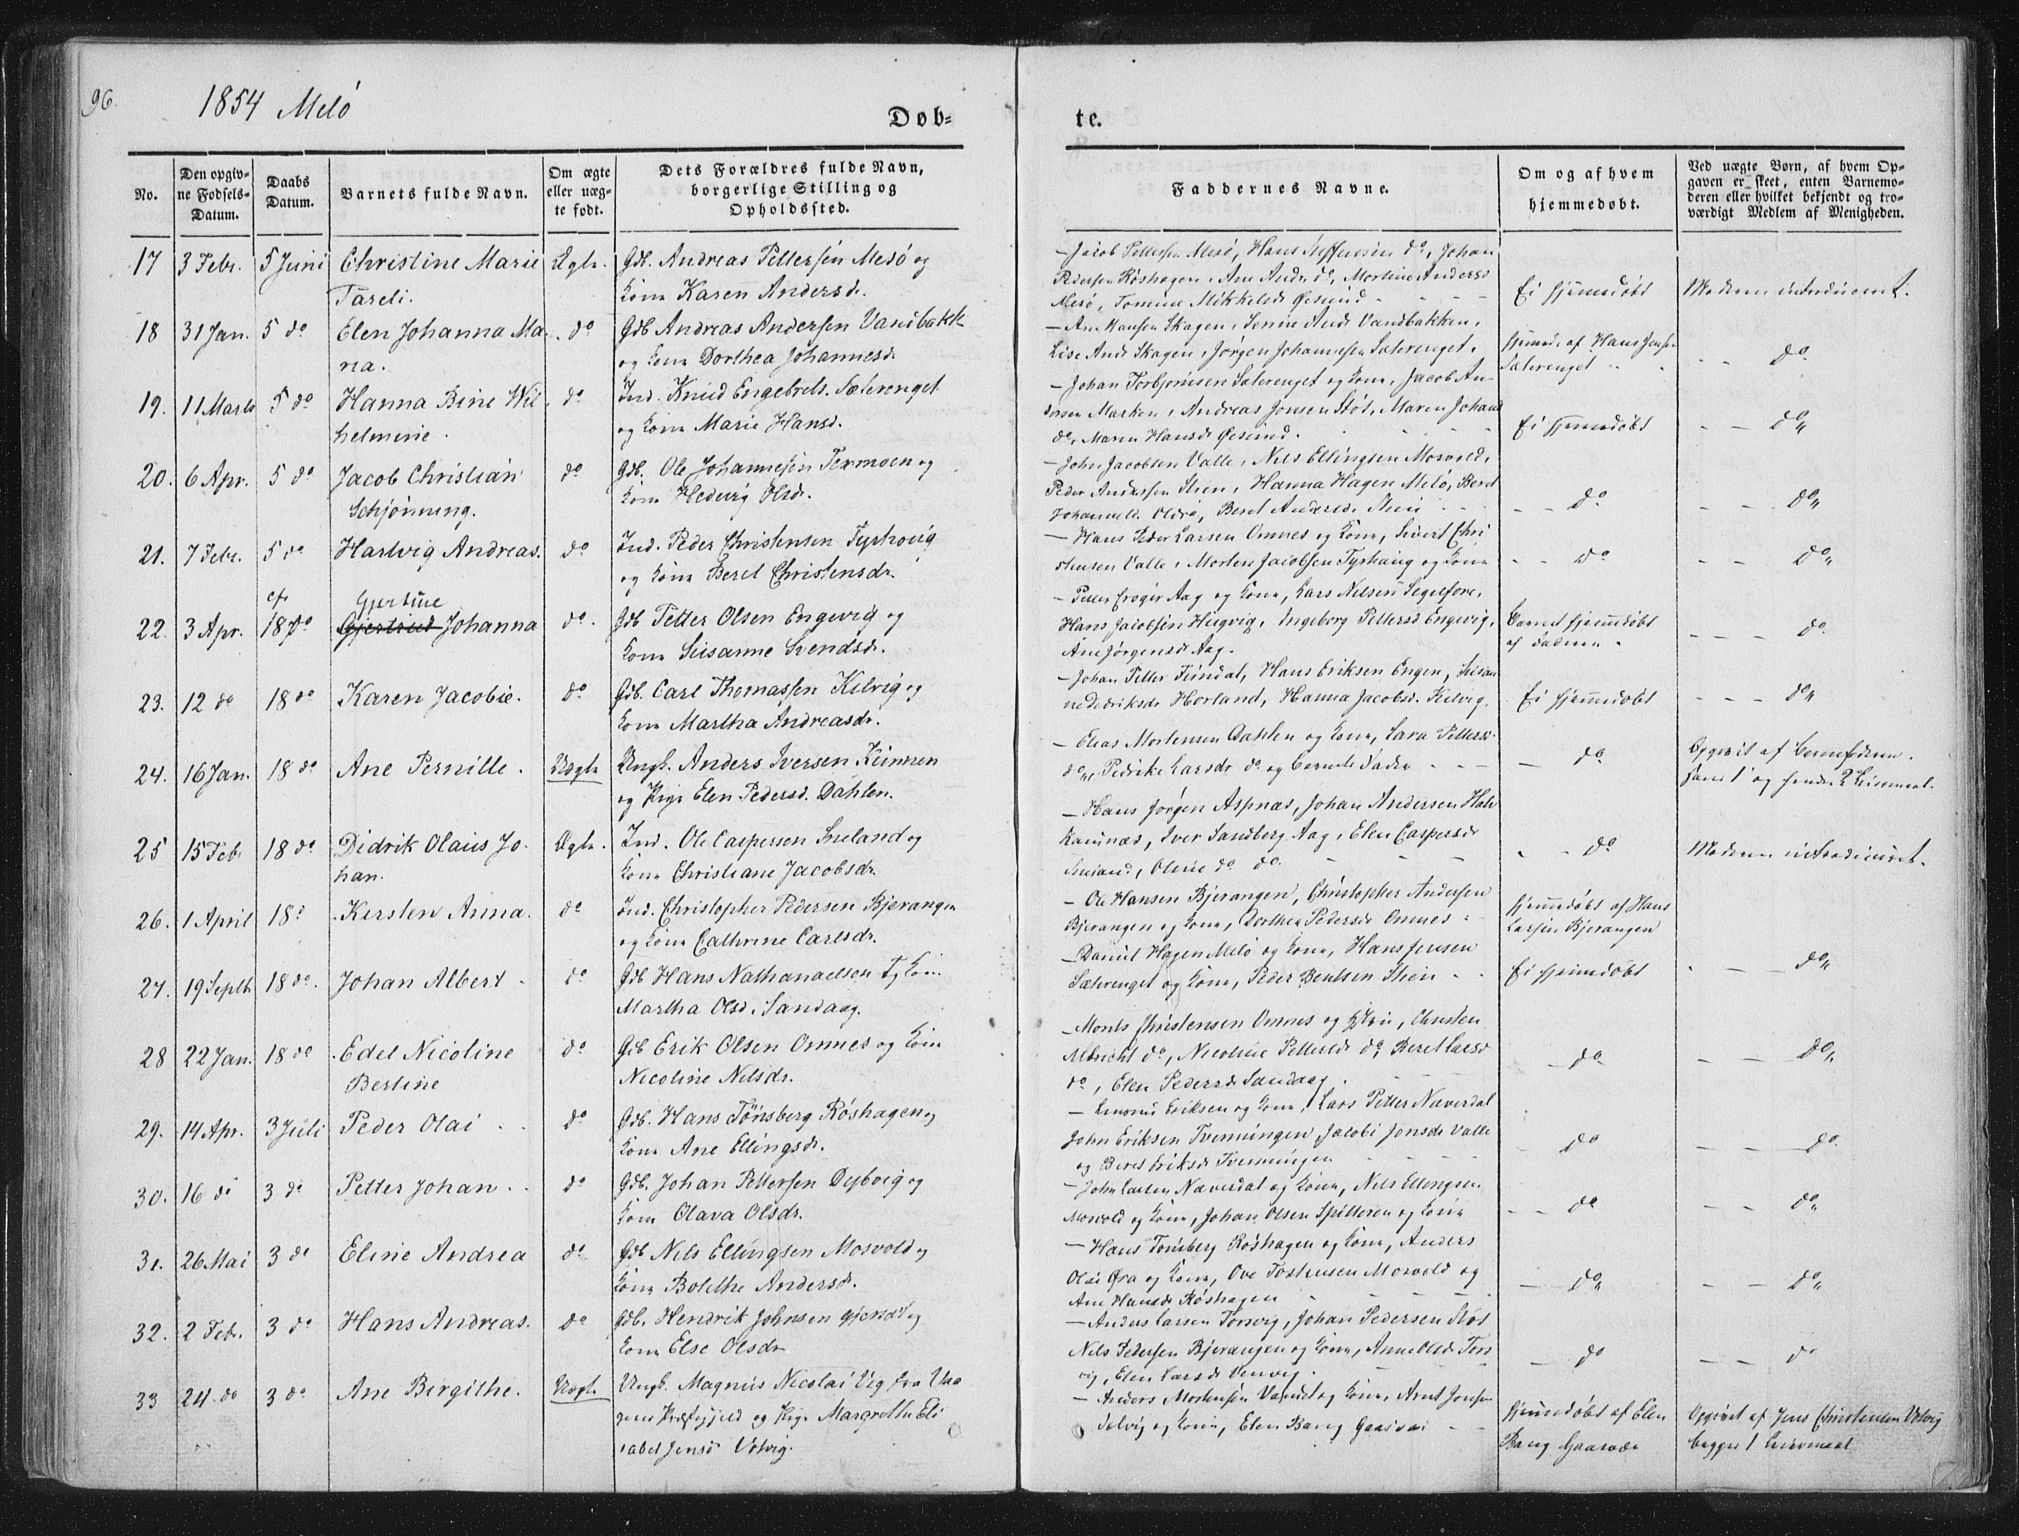 96.
1854 Melö
Døb-
te.
No.
Den opgiv-
ne Fødsels-
Datum.
Daabs
Datum.
Barnets fulde Navn.
Om ægte
eller uæg-
te født.
Dets Forældres fulde Navn,
borgerlige Stilling og
Opholdssted.
Faddernes Navne.
Om og af hvem
hjemmedøbt.
Ved uægte Børn, af hvem Op-
gaven er skeet, enten Barnemo-
deren eller hvilket bekjendt og tro-
værdigt Medlem af Menigheden.
17 3 Febr. 5 Juni Christine Marie Ægte. Gdb. Andreas Pettersen Mesö og
Tareli. Kone Karen Andersd.
– Jacob Pettersen Mesö, Hans Steffensen do, Johan
Pedersen Röshagen, Ane Andsd do, Mortine Andersd
Mesö, Tomine Mikkelsd Øesund Ei hjemmedöbt Moderen introduceret.
18 31 Jan. 5 do Elen Johanna Ma- do Gdb Andreas Andersen Vandbakk
ria. og Kone Dorthea Johannesd.
– Ane Hansen Skagen, Vandbakken,
Lise Andsd Skagen, Jörgen Johannesen Sæterenget, hjemmed. af Hans Jensen
Sæterenget do
19. 11 Marts 5 do Hanna Bine Wil- do Ind. Knud Engebrets. Sæterenget
helmine. og Kone Marie Hansd.
– Johan Torbjörnsen Sæterenget og Kone, Jacob An-
dersen Marken, Andreas Jonsen Stöt, Maren Johansd
do, Maren Hansd Øesund. Ei hjemmedöbt do
20. 6 Apr. 5 do Jacob Christian do Gdb. Ole Johannesen Termoen og
Schjönning. Kone Hedevig Olsdr.
– John Jacobsen Valle, Nils Ellingsen Mosvold,
Peder Andersen Stien, Hanna Hagen Melö, Beret
Johannesd. Oldra, Beret Andersd. Stien do do
21. 7 Febr. 5 do Hartvig Andreas. do Ind. Peder Christensen Tyshoug
og Kone Beret Christensdr.
– Hans Peder Larsen Omnes og Kone, Sivert Chri-
stensen Valle, Morten Jacobsen Tyshaug og Kone do do
22. 3 Apr. 18 do Gjertine Johanna do. Gdb Petter Olsen Engevig og
Kone Susanne Svendsd.
– Petter Aag og Kone, Lars Nilsen Segelfore,
Hans Jacobsen Hugvig, Ingeborg Pettersd Engevig,
Ane Jörgensd Aag. Barnet hjemmedöbt
af Faderen. do.
23. 12 do 18 do Karen Jacobie. do Gdb. Carl Thomassen Kilvig og
Kone Martha Andreasdr.
– Johan Petter Fondal, Hans Eriksen Engen, Susan
ne Dedriksdr Horland, Hanna Jacobsd. Kilvig. Ei hjemmedöbt do
24. 16 Jan. 18 do Ane Pernille. Uægte Ungk. Anders Iversen Keinnen
og Pige Elen Pedersd. Dahlen.
– Elias Mortensen Dahlen og Kone, Lava Pettersd.
do, Pedrike Larsdr do og Barnets Fader do Opgivet af Barnefaderen.
hans 1 og hendes 2 Leiermaal.
25 15 Febr 18 do Didrik Olaus Jo- Ægte. Ind. Ole Caspersen Sneland og
han. Kone Christiane Jacobsdr.
– Hans Jörgen Aspnæs, Johan Andersen Hals
Kaninæs, Iver Sandberg Aag, Elen Caspersdr
Sneland, Oline do do. do Moderen introduceret.
26. 1 April 18 Kersten Anna. do Ind. Christopher Pedersen Bjerangen
og Kone Cathrine Carlsdr.
– Ole Hansen Bjerangen, Christopher Andersen
Bjerangen og Kone, Dorthea Pedersd Omnes hjemmedöbt af Hans
Larsen Bjerangen
27. 19 Septb 18 do. Johan Albert do Gdb Hans Nathanaelsen Kone
Martha Olsd. Sandaag.
– Daniel Hagen Melö og Kone, Hans Jensen
Sæterenget og Kone, Peder Bentsen Stien Ei hjemmedöbt do
28 22 Jan. 18 do Edel Nicoline do Gdb Erik Olsen Omnes og Kone
Bertine Nicoline Nilsdr.
– Monts Christensen Omnes og Kone, Christen
Albricht do, Nicoline Pettersd do, Beret Larsd
do, Elen Pedersd Sandaag. do do
29. 14 Apr. 3 Juli Peder Olai do Gdb. Hans Tönsberg Röshagen og
Kone Ane Ellingsdr.
– Eriksen og Kone, Lars Petter Næverdal
John Eriksen Tvenningen, Jacobi Jonsdr Valle
og Beret Eriksd Tvenningen do do.
30. 16 do 3 do Petter Johan do Gdb. Johan Pettersen Dybvig og
Kone Olava Olsdr.
– John Larsen Næverdal og Kone, Nils Ellingsen
Mosvold og Kone, Johan Olsen Spilderen og Kone do do
31. 26 Mai 3 do Eline Andrea do Gdb Nils Ellingsen Mosvold og
Kone Bolethe Andersdr.
– Hans Tönsberg Röshagen og Kone, Anders
Olai Øra og Kone, Ove Tostensen Mosvold og
Ane Hansd. Röshagen do do
32. 2 Febr. 3 do Hans Andreas. do Gdb. Hendrik Johnsen Gjersöt og
Kone Else Olsdr
– Anders Larsen Torsvig, Johan Pedersen Stöt
Nils Pedersen Bjerangen og Kone, Anne Olsd Tors
vig, Elen Larsdr Venvig. do do
33 24. do 3 do Ane Birgithe. Uægte Ungk. Magnus Nicolai Vig fra Vaa
gens Præstegjeld og Pige Margrethe Eli
sabet Jensd Votvig.
– Anders Mortensen Vandet og Kone, Arnt Jonsen
Selvig og Kone, Elen Bang Gaasvær hjemmedöbt af Elen
Bang Gaasvær Opgivet af Jens Christensen Votvig
begges 1 Leiermaal